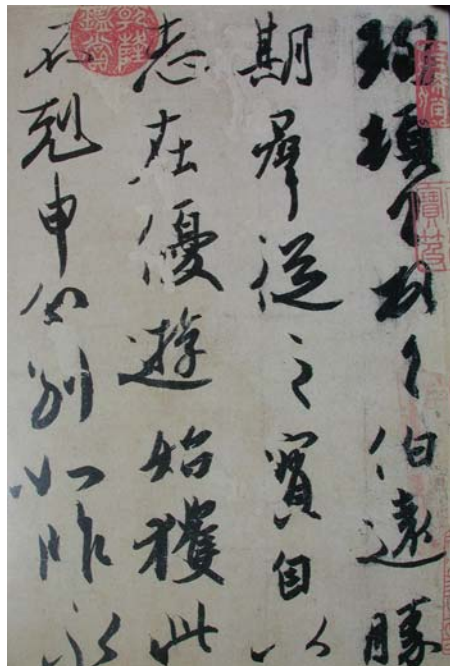 珣頓首頓首伯遠勝
期羣從之寶自以
志在優遊始獲此
不剋申分別如昨永
乾隆鑑賞